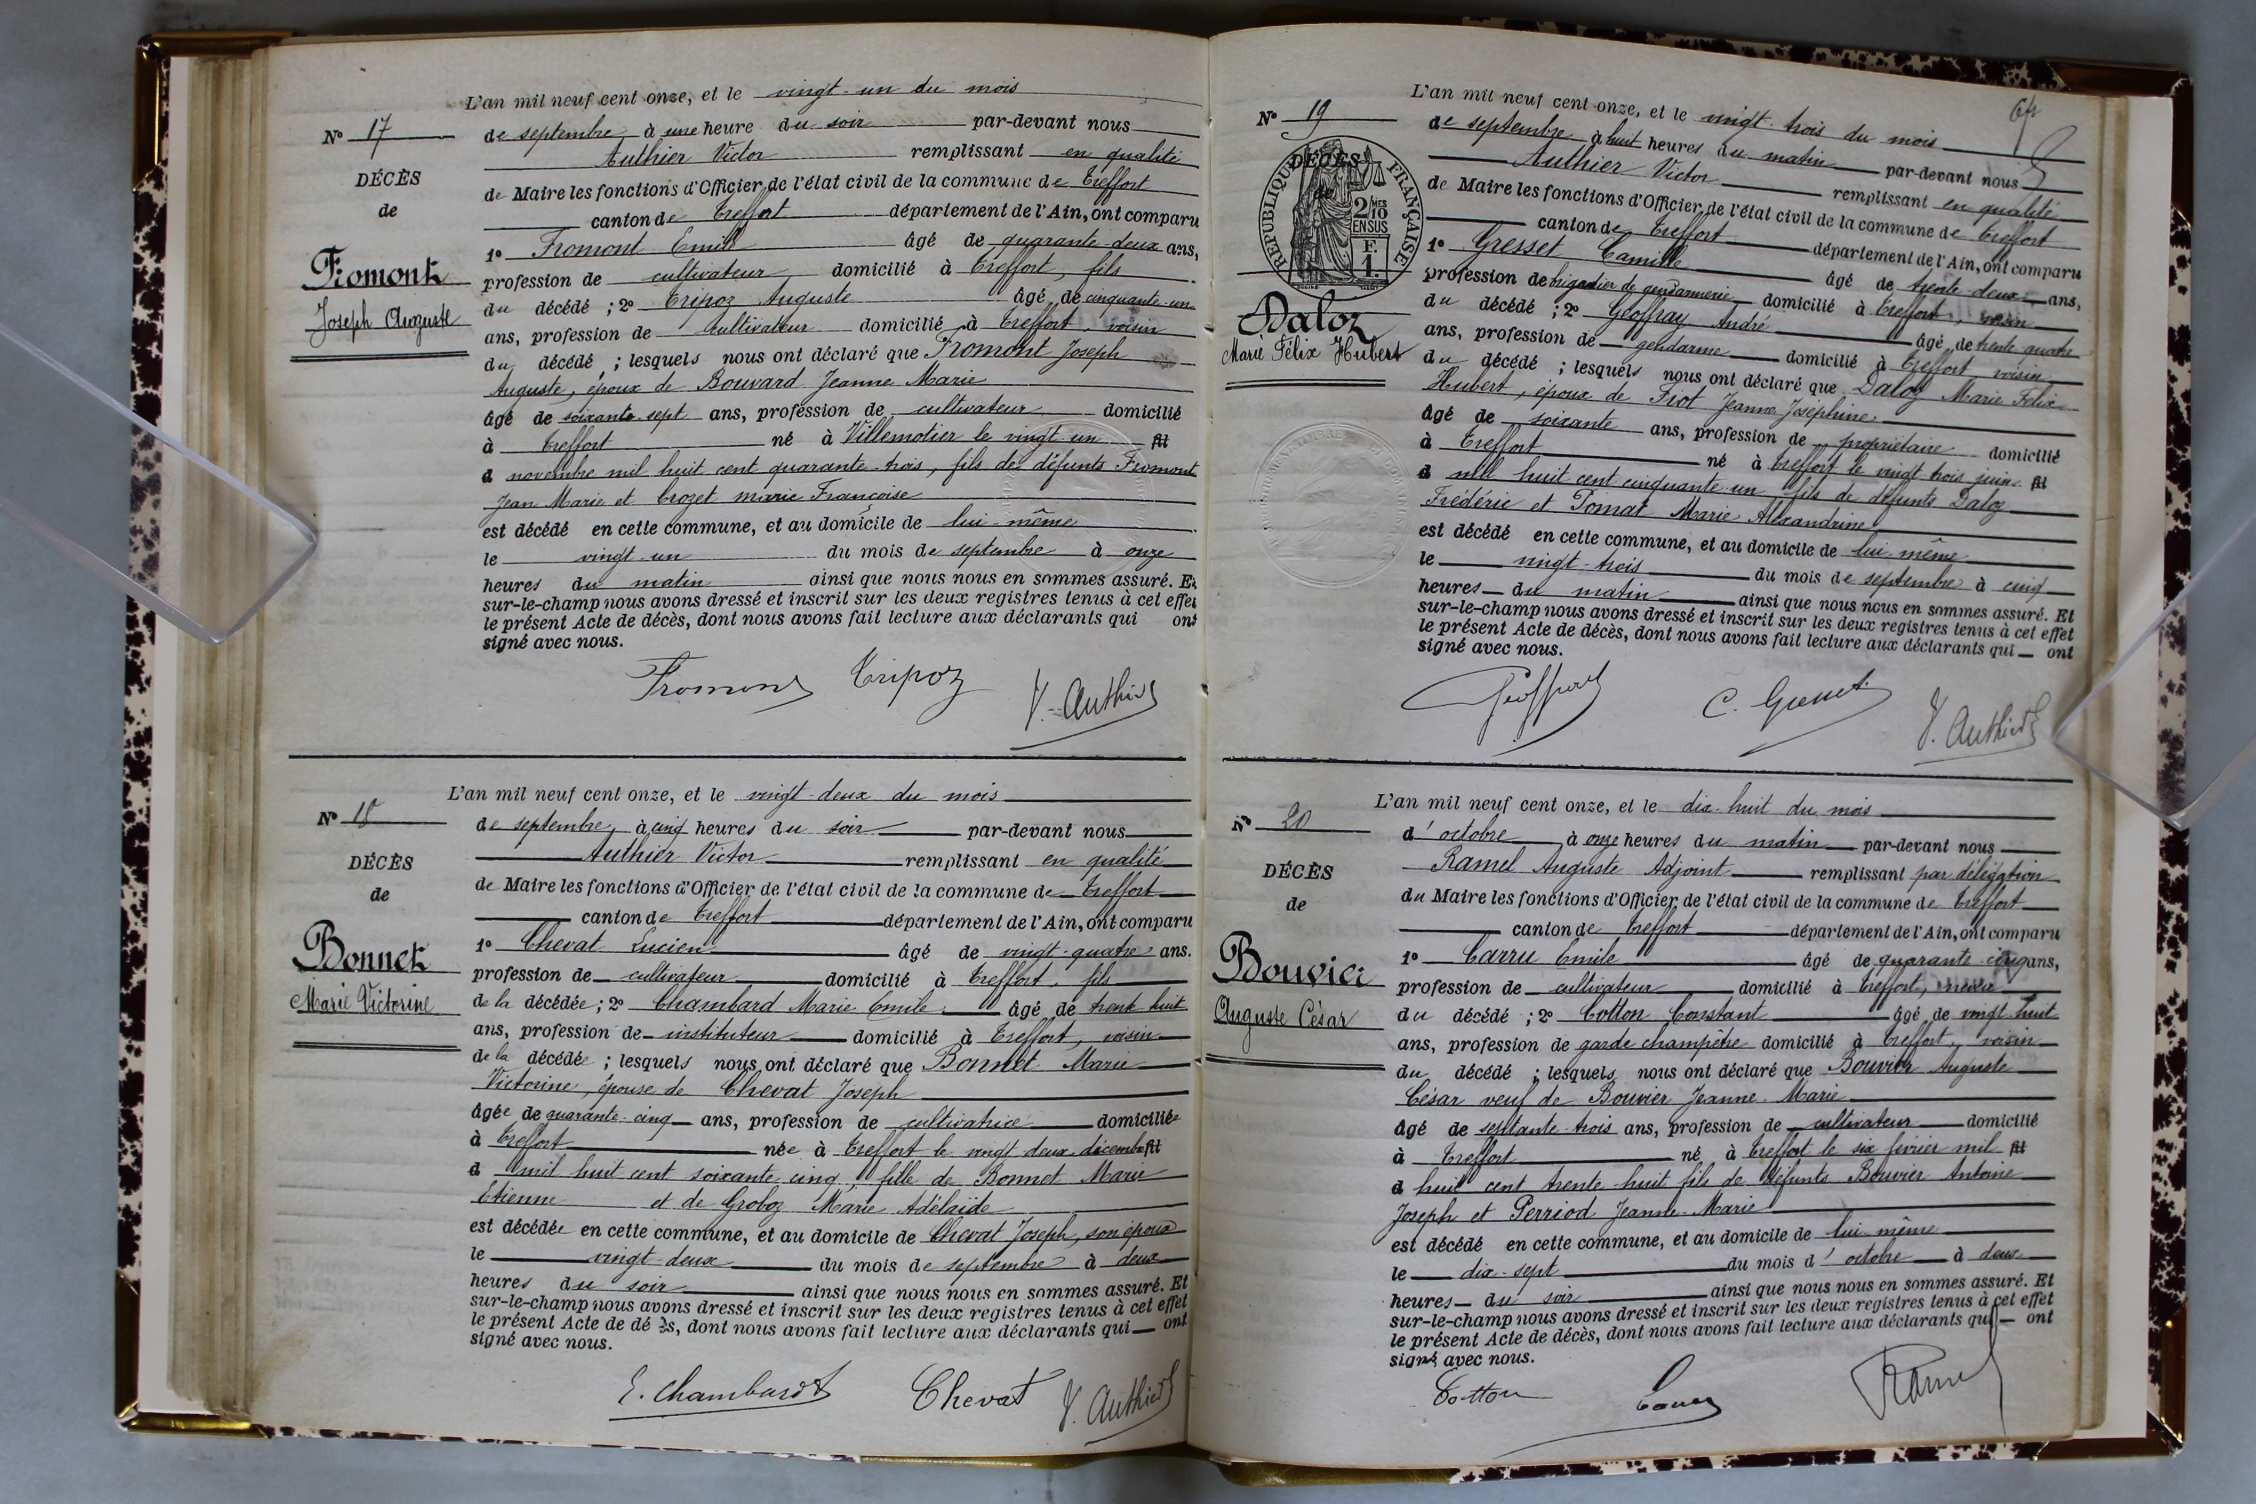 L'an mil neuf cent onze, et le vingt-un du mois
N° 17
de septembre à une heure du soir par-devant nous
Authier Victor remplissant en qualité
DÉCÈS
de Maire les fonctions d'Officier de l'état civil de la commune de Treffort
de
canton de Treffort département de l'Ain, ont comparu
1° Fromont Emile âgé de quarante-deux ans,
Fromont
profession de cultivateur domicilié à Treffort, fils
Joseph Auguste
du décédé ; 2° Tripoz Auguste âgé de cinquante-un
ans, profession de cultivateur domicilié à Treffort, voisin
du décédé ; lesquels nous ont déclaré que Fromont Joseph
Auguste, époux de Bouvard Jeanne Marie
âgé de soixante sept ans, profession de cultivateur domicilié
à Treffort né à Villemotier le vingt un fil
d novembre mil huit cent quarante-trois, fils de défunts Fromont
Jean Marie et Crozet marie Françoise
est décédé en cette commune, et au domicile de lui-même
le vingt-un du mois de septembre à onze
heures du matin ainsi que nous nous en sommes assuré. Et
sur-le-champ nous avons dressé et inscrit sur les deux registres tenus à cet effet
le présent Acte de décès, dont nous avons fait lecture aux déclarants qui ont
signé avec nous.
Fromont Tripoz V. Authier
L'an mil neuf cent onze, et le vingt-deux du mois
N° 18
de septembre, à cinq heures du soir par-devant nous
Authier Victor remplissant en qualité
DÉCÈS
de Maire les fonctions d'Officier de l'état civil de la commune de Treffort
de
canton de Treffort département de l'Ain, ont comparu
Bonnet
1° Chevat Lucien âgé de vingt-quatre ans.
profession de cultivateur domicilié à Treffort, fils
Marie Victorine
de la décédée ; 2° Chambard Marie Emile âgé de trente huit
ans, profession de instituteur domicilié à Treffort, voisin
de la décédée ; lesquels nous ont déclaré que Bonnet Marie
Victorine, épouse de Chevat Joseph
âgée de quarante-cinq ans, profession de cultivatrice domiciliée
à Treffort née à Treffort le vingt deux décembre fil
d mil huit cent soixante cinq, fille de Bonnet Marie
Etienne et de Groboz Marie Adélaïde
est décédée en cette commune, et au domicile de Chevat Joseph, son époux
le vingt-deux du mois de septembre à deux
heures du soir ainsi que nous nous en sommes assuré. Et
sur-le-champ nous avons dressé et inscrit sur les deux registres tenus à cet effet
le présent Acte de décès, dont nous avons fait lecture aux déclarants qui ont
signé avec nous.
E. Chambard Chevat V. Authier
64
L'an mil neuf cent onze, et le vingt-trois du mois
N° 19
de septembre à huit heures du matin par-devant nous
Authier Victor remplissant en qualité
DÉCÈS
de Maire les fonctions d'Officier de l'état civil de la commune de Treffort
de
RÉPUBLIQUE FRANÇAISE
2/10 MES
EN SUS
F.
1.
canton de Treffort département de l'Ain, ont comparu
1° Gresset Camille âgé de trente-deux ans,
profession de brigadier de gendarmerie domicilié à Treffort, voisin
Daloz
du décédé ; 2° Geoffray André âgé de trente quatre
Marie Félix Hubert
ans, profession de gendarme domicilié à Treffort, voisin
du décédé ; lesquels nous ont déclaré que Daloz Marie Félix
Hubert, époux de Fiot Jeanne Joséphine
âgé de soixante ans, profession de propriétaire domicilié
à Treffort né à Treffort le vingt trois juin fil
d mil huit cent cinquante-un fils de défunts Daloz
Frédéric et Pomat Marie Alexandrine
est décédé en cette commune, et au domicile de lui-même
le vingt-trois du mois de septembre à cinq
heures du matin ainsi que nous nous en sommes assuré. Et
sur-le-champ nous avons dressé et inscrit sur les deux registres tenus à cet effet
le présent Acte de décès, dont nous avons fait lecture aux déclarants qui ont
signé avec nous.
Geoffray C. Gresset V. Authier
L'an mil neuf cent onze, et le dix-huit du mois
N° 20
d'octobre à onze heures du matin par-devant nous
Ramel Auguste Adjoint remplissant par délégation
DÉCÈS
du Maire les fonctions d'Officier de l'état civil de la commune de Treffort
de
canton de Treffort département de l'Ain, ont comparu
Bouvier
1° Carru Emile âgé de quarante-cinq ans,
profession de cultivateur domicilié à Treffort,
Auguste César
du décédé ; 2° Cotton Constant âgé de vingt huit
ans, profession de garde champêtre domicilié à Treffort, voisin
du décédé ; lesquels nous ont déclaré que Bouvier Auguste
César veuf de Bouvier Jeanne-Marie
âgé de septante-trois ans, profession de cultivateur domicilié
à Treffort né à Treffort le six février mil fil
d huit cent trente huit fils de défunts Bouvier Antoine
Joseph et Perriod Jeanne-Marie
est décédé en cette commune, et au domicile de lui-même
le dix-sept du mois d'octobre à deux
heures du soir ainsi que nous nous en sommes assuré. Et
sur-le-champ nous avons dressé et inscrit sur les deux registres tenus à cet effet
le présent Acte de décès, dont nous avons fait lecture aux déclarants qui ont
signé avec nous.
Cotton Carru Ramel